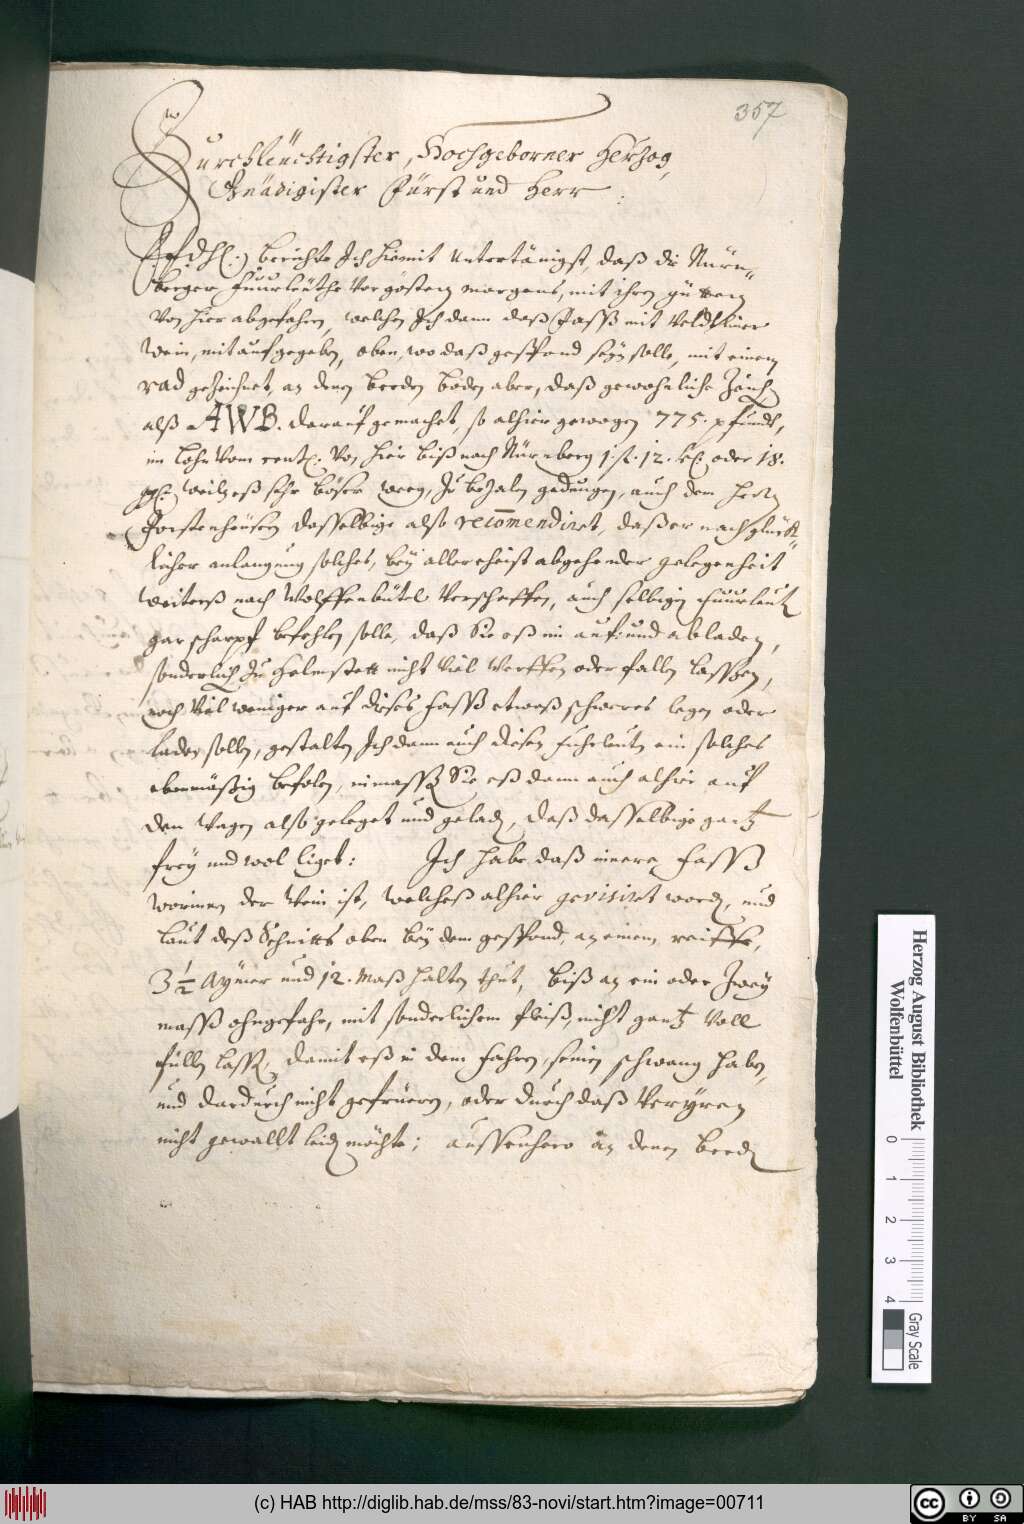 357
Durchleüchtigster, Hochgeborner Hertzog,
Gnädigister Fürst und Herr
berichte Ich hiemit untertänigst, daß die Nürn-
berger Fuurleüthe vorgösten morgens, mit ihren güttern
von hier abgefahren, welchen Ich dann daß Fassß mit Veldtliner
Wein, mit aufgegeben, oben, wo daß gespond seyn solle, mit einem
rad gezeichnet, an denen beeden böden aber, daß gewohnliche Zaichen
alß AWB. darauf gemachet, so alhier gewogen 775. pfundt,
im lohn vom cent. von hier biß nach Nürnberg 1 fl. 12. oder 18.
weiln eß sehr böser weeg, zu bezalen gedungen, auch dem Herrn
Forstenheüsern dasselbige also recom̄endiret, daß er nach glück-
licher anlangung solches, bey allerehist abgehender gelegenheit
weiterß nach Wolffenbütel verschaffen, auch selbigen Fuurleuten
gar scharpf befehlen solle, daß Sie eß im auf: und abladen,
sonderlich zu Helmstett nicht viel werffen oder fallen lasszen,
noch viel weniger auf dises Fassß etwaß schweres legen oder
laden sollen, gestalten Ich dann auch disen Fuhrleuten ein solches
ebenmäßig befolen, inmassß Sie eß dann auch alhier auf
den Wagen also geleget und geladen, daß dasselbige gantz
frey und wol liget: Ich habe daß innere Fassß
worinnen der Wein ist, welcheß alhier gevisiret worden, und
laut deß Schnitts oben bey dem gespond, an einem reiffe,
3 1/2 Aymer und 12. Maß halten thut, biß an ein oder zwey
massß ohngefahr, mit sonderlichem fleiß, nicht gantz voll
füllen lassen, damit eß in dem fahren, seinen schwang haben,
und dardurch nicht gefrüeren, oder durch daß
nicht gewallt leiden möchte; aussenhero an denen beeden
Herzog August Bibliothek
Wolfenbüttel
0 1 2 3 4
Gray Scale
(c) HAB http://diglib.hab.de/mss/83-novi/start.htm?image=00711
cc BY SA